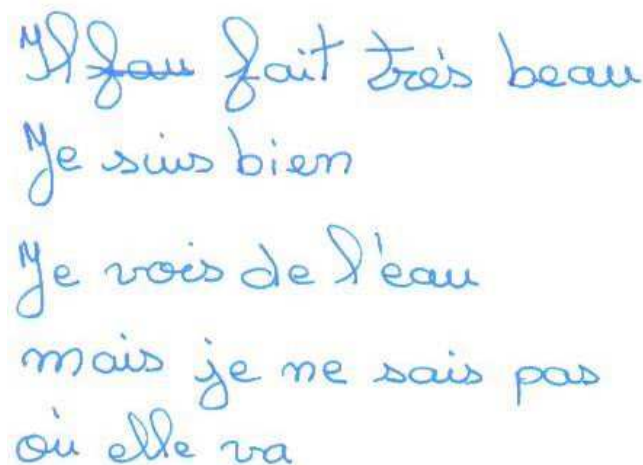 Il fau fait très beau
Je suis bien
Je vois de l'eau
mais je ne sais pas
où elle va